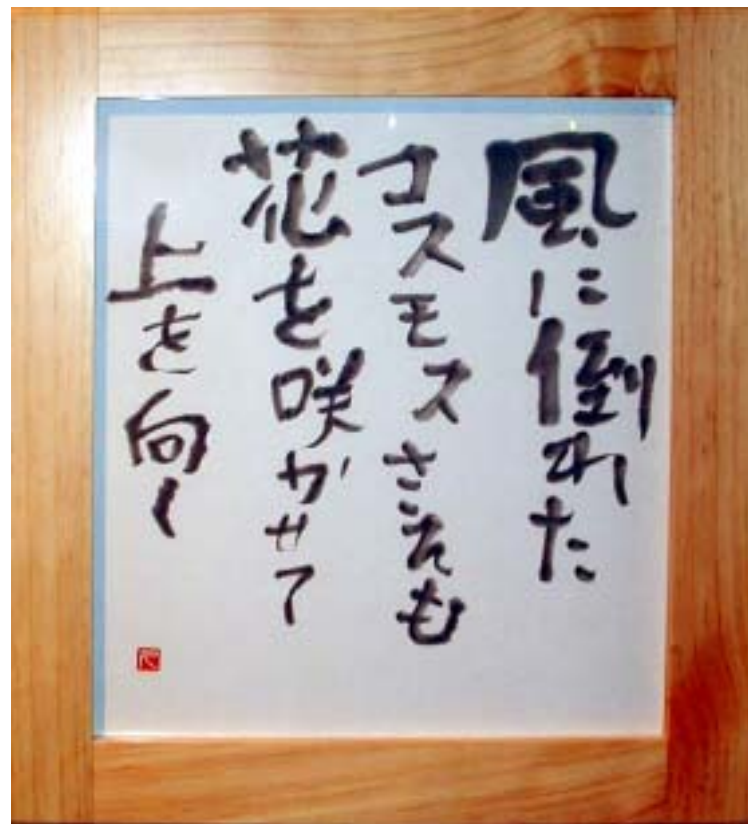 風に倒れた
コスモスさえも
花を咲かせて
上を向く